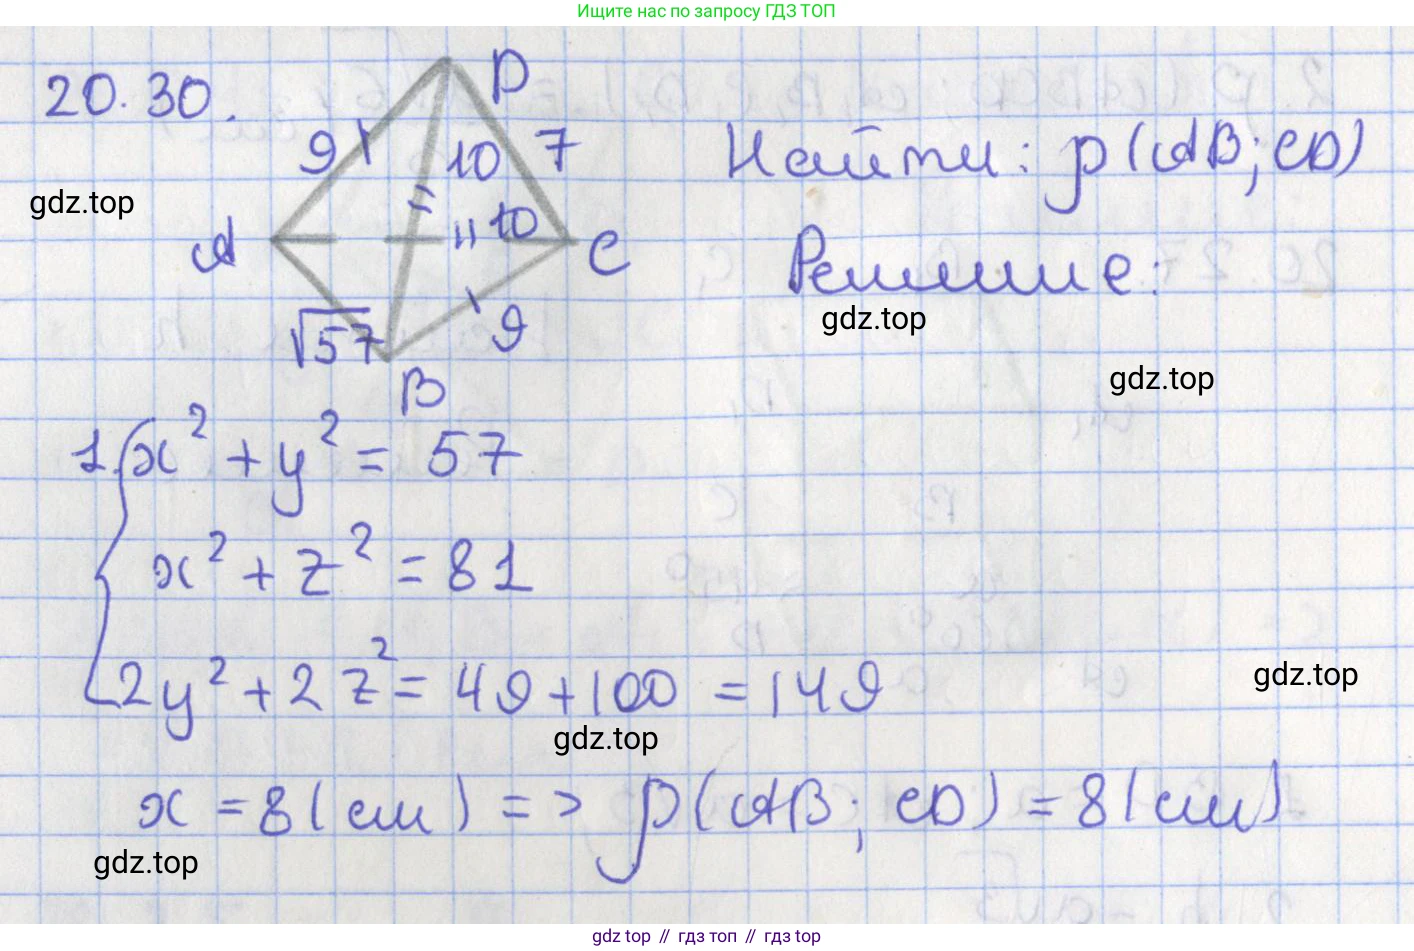 Ищите нас по запросу ГДЗ ТОП
20.30.
D
9
10
7
Найти: ρ(AB; CD)
gdz.top
A
10
C
Решение:
gdz.top
√57
9
B
gdz.top
1. { x² + y² = 57
x² + z² = 81
2y² + 2z² = 49 + 100 = 149
gdz.top
gdz.top
x = 8 (см) => ρ(AB; CD) = 8 (см)
gdz.top
gdz top // гдз топ // gdz top